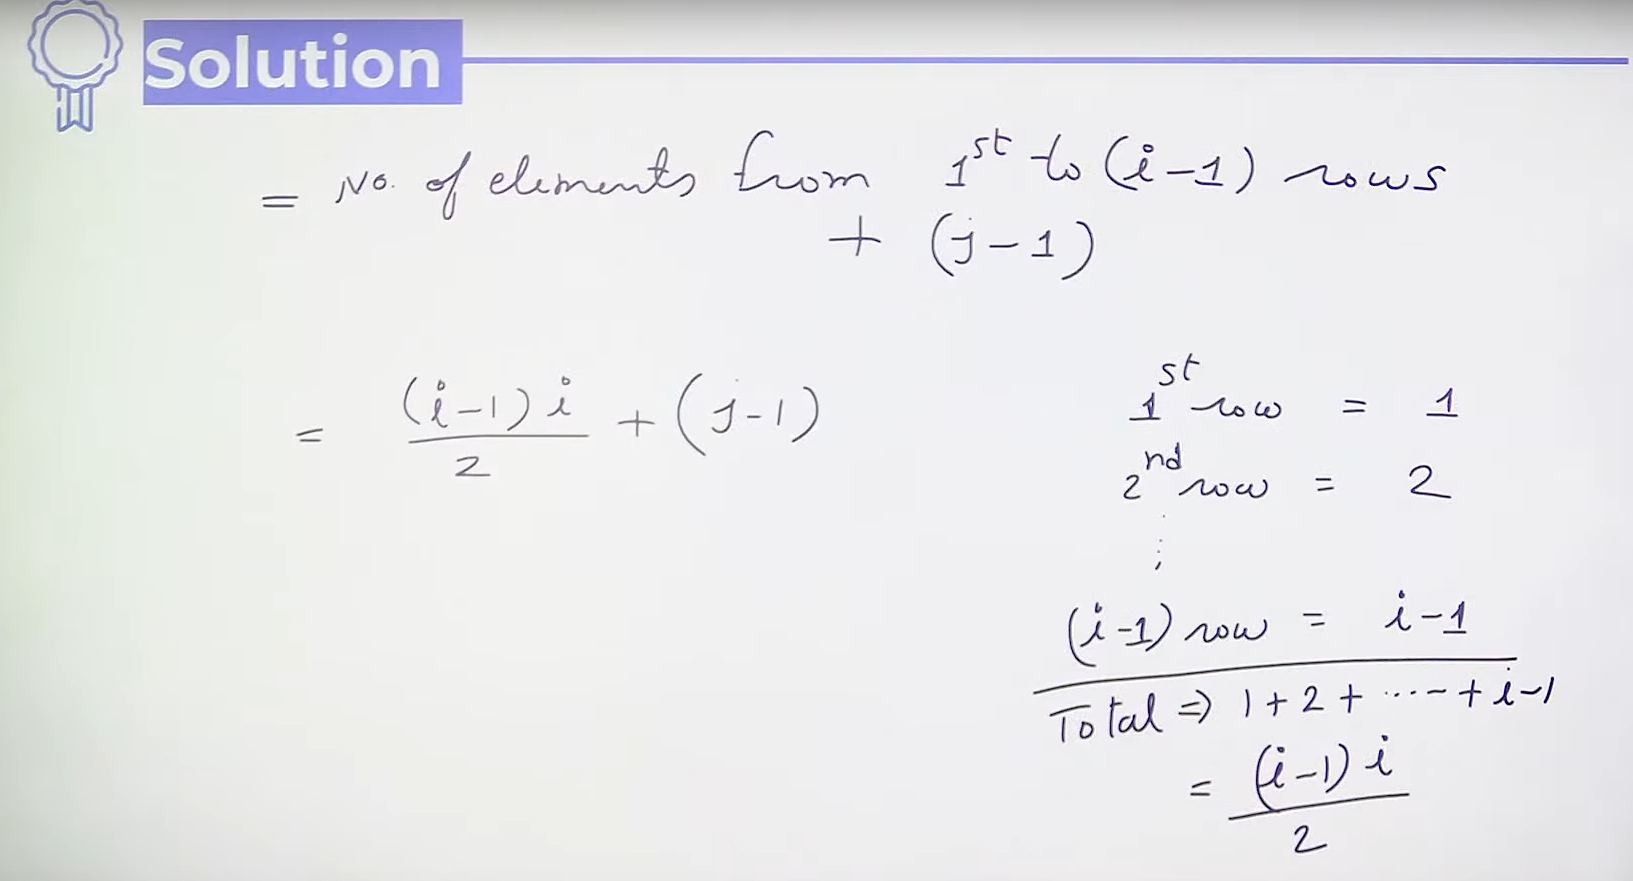 Solution
= No. of elements from 1st to (i-1) rows
+ (j-1)
= (i-1) i / 2 + (j-1)
1st row = 1
2nd row = 2
⋮
(i-1) row = i-1
Total ⇒ 1+2+ ..... + i-1
= (i-1) i / 2